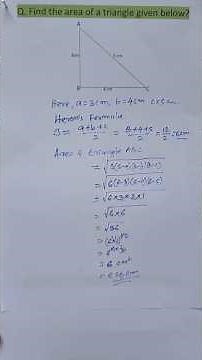 Q. Find the area of a triangle given below?
A
3cm 5cm
B 4cm C
Here, a=3cm, b=4cm c=5cm
Heron's Formula
S = a+b+c/2 = 3+4+5/2 = 12/2 = 6cm
Area of triangle ABC
= √s(s-a)(s-b)(s-c)
= √6(6-3)(6-4)(6-5)
= √6×3×2×1
= √6×6
= √36
= 6 cm²